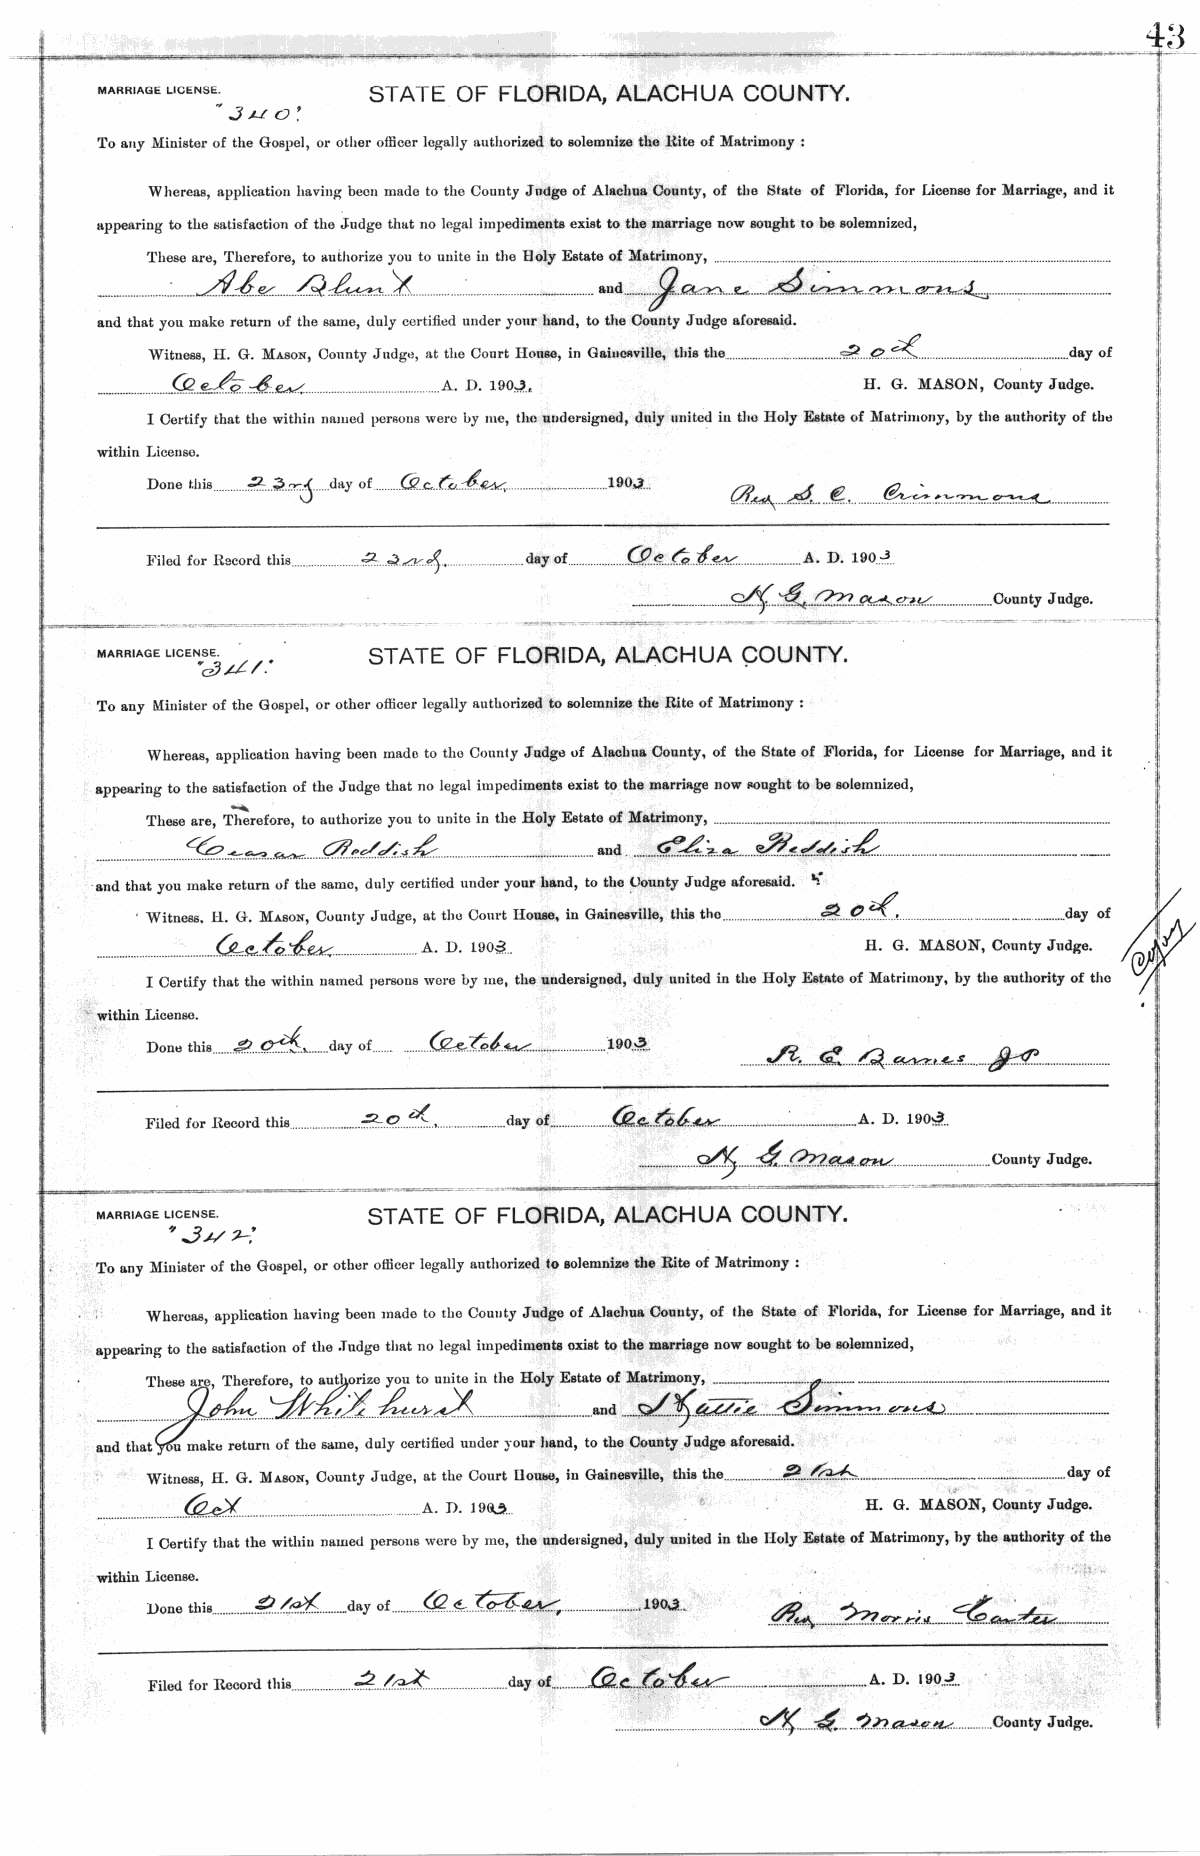 43
MARRIAGE LICENSE.
STATE OF FLORIDA, ALACHUA COUNTY.
"340".
To any Minister of the Gospel, or other officer legally authorized to solemnize the Rite of Matrimony :
Whereas, application having been made to the County Judge of Alachua County, of the State of Florida, for License for Marriage, and it
appearing to the satisfaction of the Judge that no legal impediments exist to the marriage now sought to be solemnized,
These are, Therefore, to authorize you to unite in the Holy Estate of Matrimony,
Abe Blunt and Jane Simmons
and that you make return of the same, duly certified under your hand, to the County Judge aforesaid.
Witness, H. G. MASON, County Judge, at the Court House, in Gainesville, this the 20th day of
October A. D. 1903. H. G. MASON, County Judge.
I Certify that the within named persons were by me, the undersigned, duly united in the Holy Estate of Matrimony, by the authority of the
within License.
Done this 23rd day of October 1903 Rev S. C. Crimmons
Filed for Record this 23rd. day of October A. D. 1903
H. G. Mason County Judge.
MARRIAGE LICENSE.
STATE OF FLORIDA, ALACHUA COUNTY.
"341".
To any Minister of the Gospel, or other officer legally authorized to solemnize the Rite of Matrimony :
Whereas, application having been made to the County Judge of Alachua County, of the State of Florida, for License for Marriage, and it
appearing to the satisfaction of the Judge that no legal impediments exist to the marriage now sought to be solemnized,
These are, Therefore, to authorize you to unite in the Holy Estate of Matrimony,
Ceasar Reddish and Eliza Reddish
and that you make return of the same, duly certified under your hand, to the County Judge aforesaid.
Witness, H. G. MASON, County Judge, at the Court House, in Gainesville, this the 20th. day of
October A. D. 1903 H. G. MASON, County Judge.
Copy
I Certify that the within named persons were by me, the undersigned, duly united in the Holy Estate of Matrimony, by the authority of the
within License.
Done this 20th. day of October 1903 R. E. Barnes JP
Filed for Record this 20th. day of October A. D. 1903
H. G. Mason County Judge.
MARRIAGE LICENSE.
STATE OF FLORIDA, ALACHUA COUNTY.
"342".
To any Minister of the Gospel, or other officer legally authorized to solemnize the Rite of Matrimony :
Whereas, application having been made to the County Judge of Alachua County, of the State of Florida, for License for Marriage, and it
appearing to the satisfaction of the Judge that no legal impediments exist to the marriage now sought to be solemnized,
These are, Therefore, to authorize you to unite in the Holy Estate of Matrimony,
John Whitehurst and Hattie Simmons
and that you make return of the same, duly certified under your hand, to the County Judge aforesaid.
Witness, H. G. MASON, County Judge, at the Court House, in Gainesville, this the 21st day of
Oct A. D. 1903 H. G. MASON, County Judge.
I Certify that the within named persons were by me, the undersigned, duly united in the Holy Estate of Matrimony, by the authority of the
within License.
Done this 21st day of October, 1903 Rev Morris Carter
Filed for Record this 21st day of October A. D. 1903
H. G. Mason County Judge.